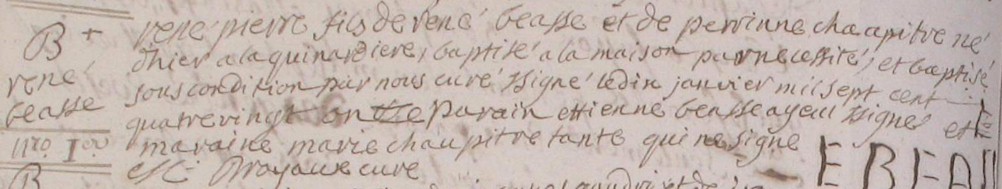 B +
rené
beasse
n.ro 1.er
rené pierre fils de rené beasse et de perrinne chaapitre né
dhier a la quinardiere, baptisé a la maison par necessité, et baptisé
sous condition par nous curé ssigné le dix janvier mil sept cent
quatrevingt onze parain ettienne beasse ayeul ssigné et la
maraine marie chaupitre tante qui ne signe
curé
E BEA
B